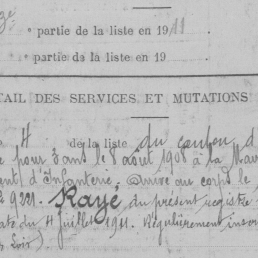 partie de la liste en 1911
partie de la liste en 19
AIL DES SERVICES ET MUTATIONS
4 de la liste du canton d
pour 3 ans le 8 août 190 à la Mai
ent d'Infanterie. Arrivé au corps le
9221. Rayé du présent registre
du 4 juillet 1911. Régulièrement inscr